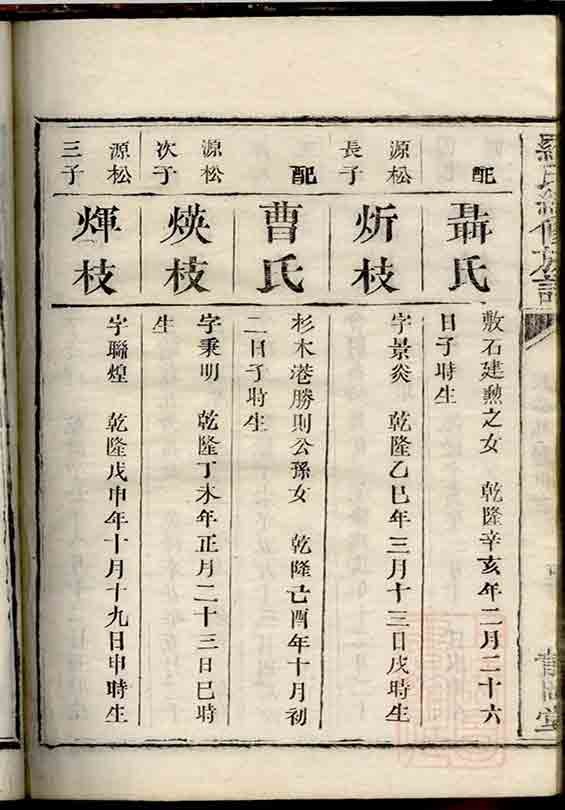 配
聶氏
敷石建勲之女 乾隆辛亥年二月二十六
日子時生
源松
長子
炘枝
字景炎 乾隆乙巳年三月十三日戌時生
配
曹氏
杉木港勝則公孫女 乾隆己酉年十月初
二日子時生
源松
次子
煐枝
字秉明 乾隆丁未年正月二十三日巳時
生
源松
三子
煇枝
字聯煌 乾隆戊申年十月十九日申時生